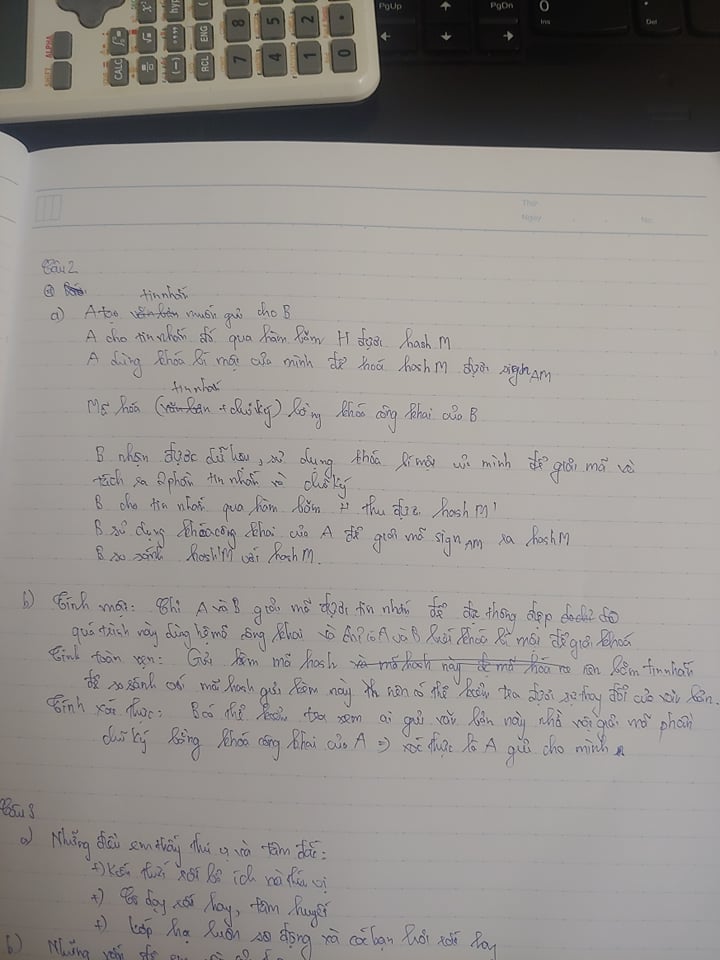 SHIFT ALPHA
CALC
RCL
ENG
hyp
(-)
7 8
4 5
1 2
0 •
PgUp
PgDn
0
Ins
Del
Thứ
Ngày No.
Câu 2
tin nhắn
a) A tạo văn bản muốn gửi cho B
A cho tin nhắn đó qua hàm băm H được hash M
A dùng khóa bí mật của mình để khoá hash M được sign AM
tin nhắn
Mã hóa (văn bản + chữ ký) bằng khóa công khai của B
B nhận được dữ liệu, sử dụng khóa bí mật của mình để giải mã và
tách ra 2 phần tin nhắn và chữ ký
B cho tin nhắn qua hàm băm H thu được hash M'
B sử dụng khóa công khai của A để giải mã sign AM ra hash M
B so sánh hash'M với hash M.
b) Tính mật: Chỉ A và B giải mã được tin nhắn để thông điệp do
quá trình này dùng hệ mã công khai và chỉ có A và B biết khóa bí mật để giải khoá
Tính toàn vẹn: Gửi kèm mã hash nên kèm tin nhắn
để so sánh với mã hash gửi kèm này thì nên có thể kiểm tra được sự thay đổi của văn bản.
Tính xác thực: B có thể kiểm tra xem ai gửi văn bản này nhờ việc giải mã phần
chữ ký bằng khóa công khai của A => xác thực là A gửi cho mình
Câu 3
a) Những điều em thấy thú vị và tâm đắc:
+) Kiến thức rất bổ ích và thú vị
+) Cô dạy rất hay, tâm huyết
+) Lớp học luôn sôi động và các bạn hỏi rất hay
b) Những vấn đề em